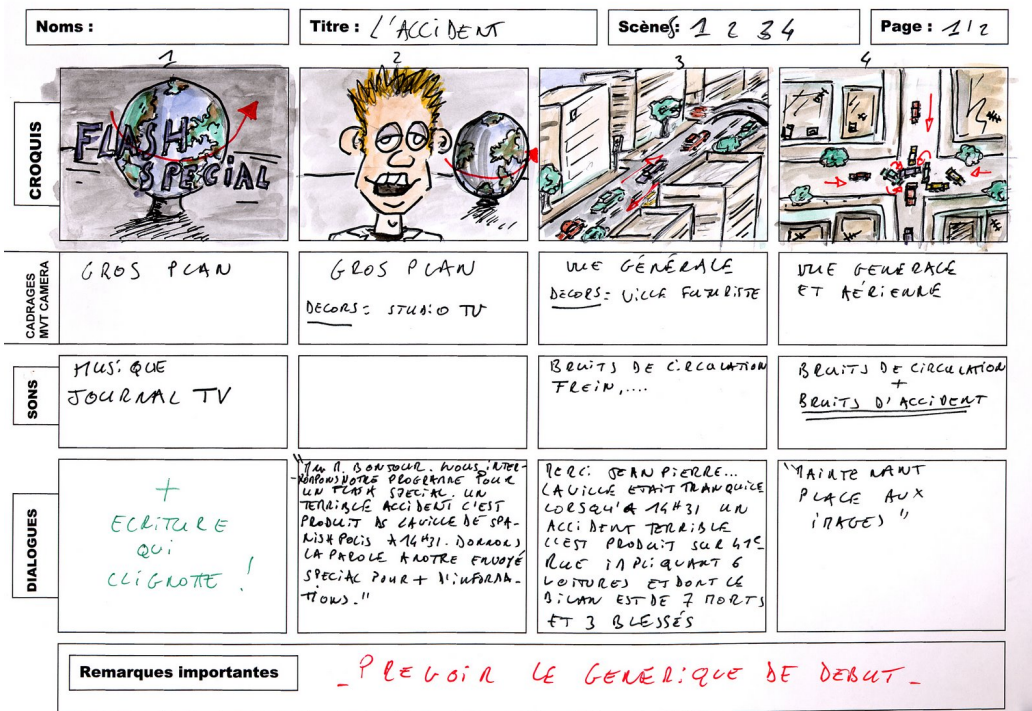 Noms :
Titre : L'ACCIDENT
Scènes : 1 2 3 4
Page : 1/2
1
2
3
4
CROQUIS
FLASH
SPECIAL
CADRAGES
MVT CAMERA
GROS PLAN
GROS PLAN
DECORS = STUDIO TV
VUE GÉNÉRALE
DECORS = VILLE FUTURISTE
VUE GENERALE
ET AÉRIENNE
SONS
MUSIQUE
JOURNAL TV
BRUITS DE CIRCULATION
FREIN,....
BRUITS DE CIRCULATION
+
BRUITS D'ACCIDENT
DIALOGUES
+
ECRITURE
QUI
CLIGNOTTE !
BONSOUR. NOUS INTER-
ROMPONS NOTRE PROGRAMME POUR
UN FLASH SPECIAL. UN
TERRIBLE ACCIDENT C'EST
PRODUIT DS LA VILLE DE SPA-
NISH POLIS A 14H31. DONNONS
LA PAROLE A NOTRE ENVOYÉ
SPECIAL POUR + D'INFORMA-
TIONS."
MERCI JEAN PIERRE...
LA VILLE ETAIT TRANQUILE
LORSQU'A 14H31 UN
ACCIDENT TERRIBLE
C'EST PRODUIT SUR 41e
RUE IMPLIQUANT 6
VOITURES ET DONT LE
BILAN EST DE 7 MORTS
ET 3 BLESSÉS
"MAINTENANT
PLACE AUX
IMAGES"
Remarques importantes
- PREVOIR LE GENERIQUE DE DEBUT -